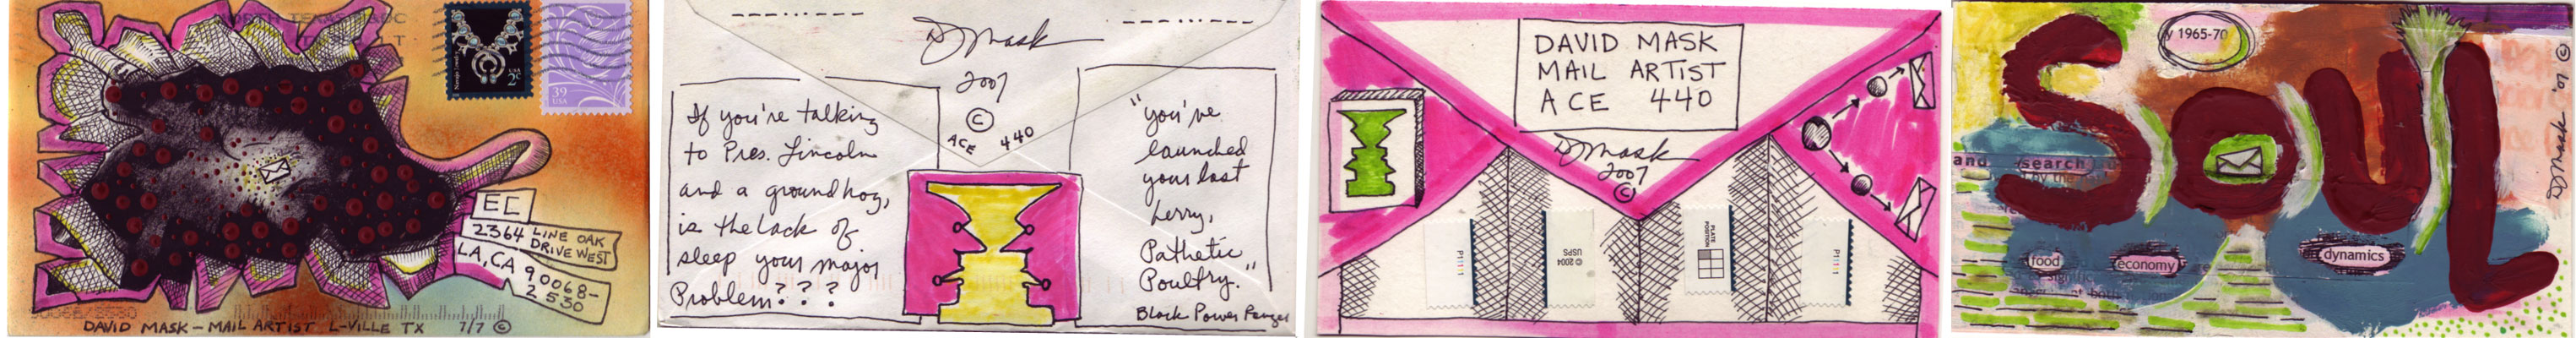 NORTH TEXAS P&DC
USA 2c
39
USA
EC
2364 LINE OAK
DRIVE WEST
LA, CA 90068-
2530
90068/2530
DAVID MASK - MAIL ARTIST L-VILLE TX 7/7 ©
D Mask
2007
©
ACE 440
If you're talking
to Pres. Lincoln
and a groundhog,
is the lack of
sleep your major
Problem???
"you've
launched
your last
berry,
Pathetic
Poultry."
Black Power Ranger
DAVID MASK
MAIL ARTIST
ACE 440
D Mask
2007
©
P1111
© 2004
USPS
PLATE
POSITION
P1111
y 1965-70
SOUL
and search
by the
food
economy
dynamics
© 6. D Mask